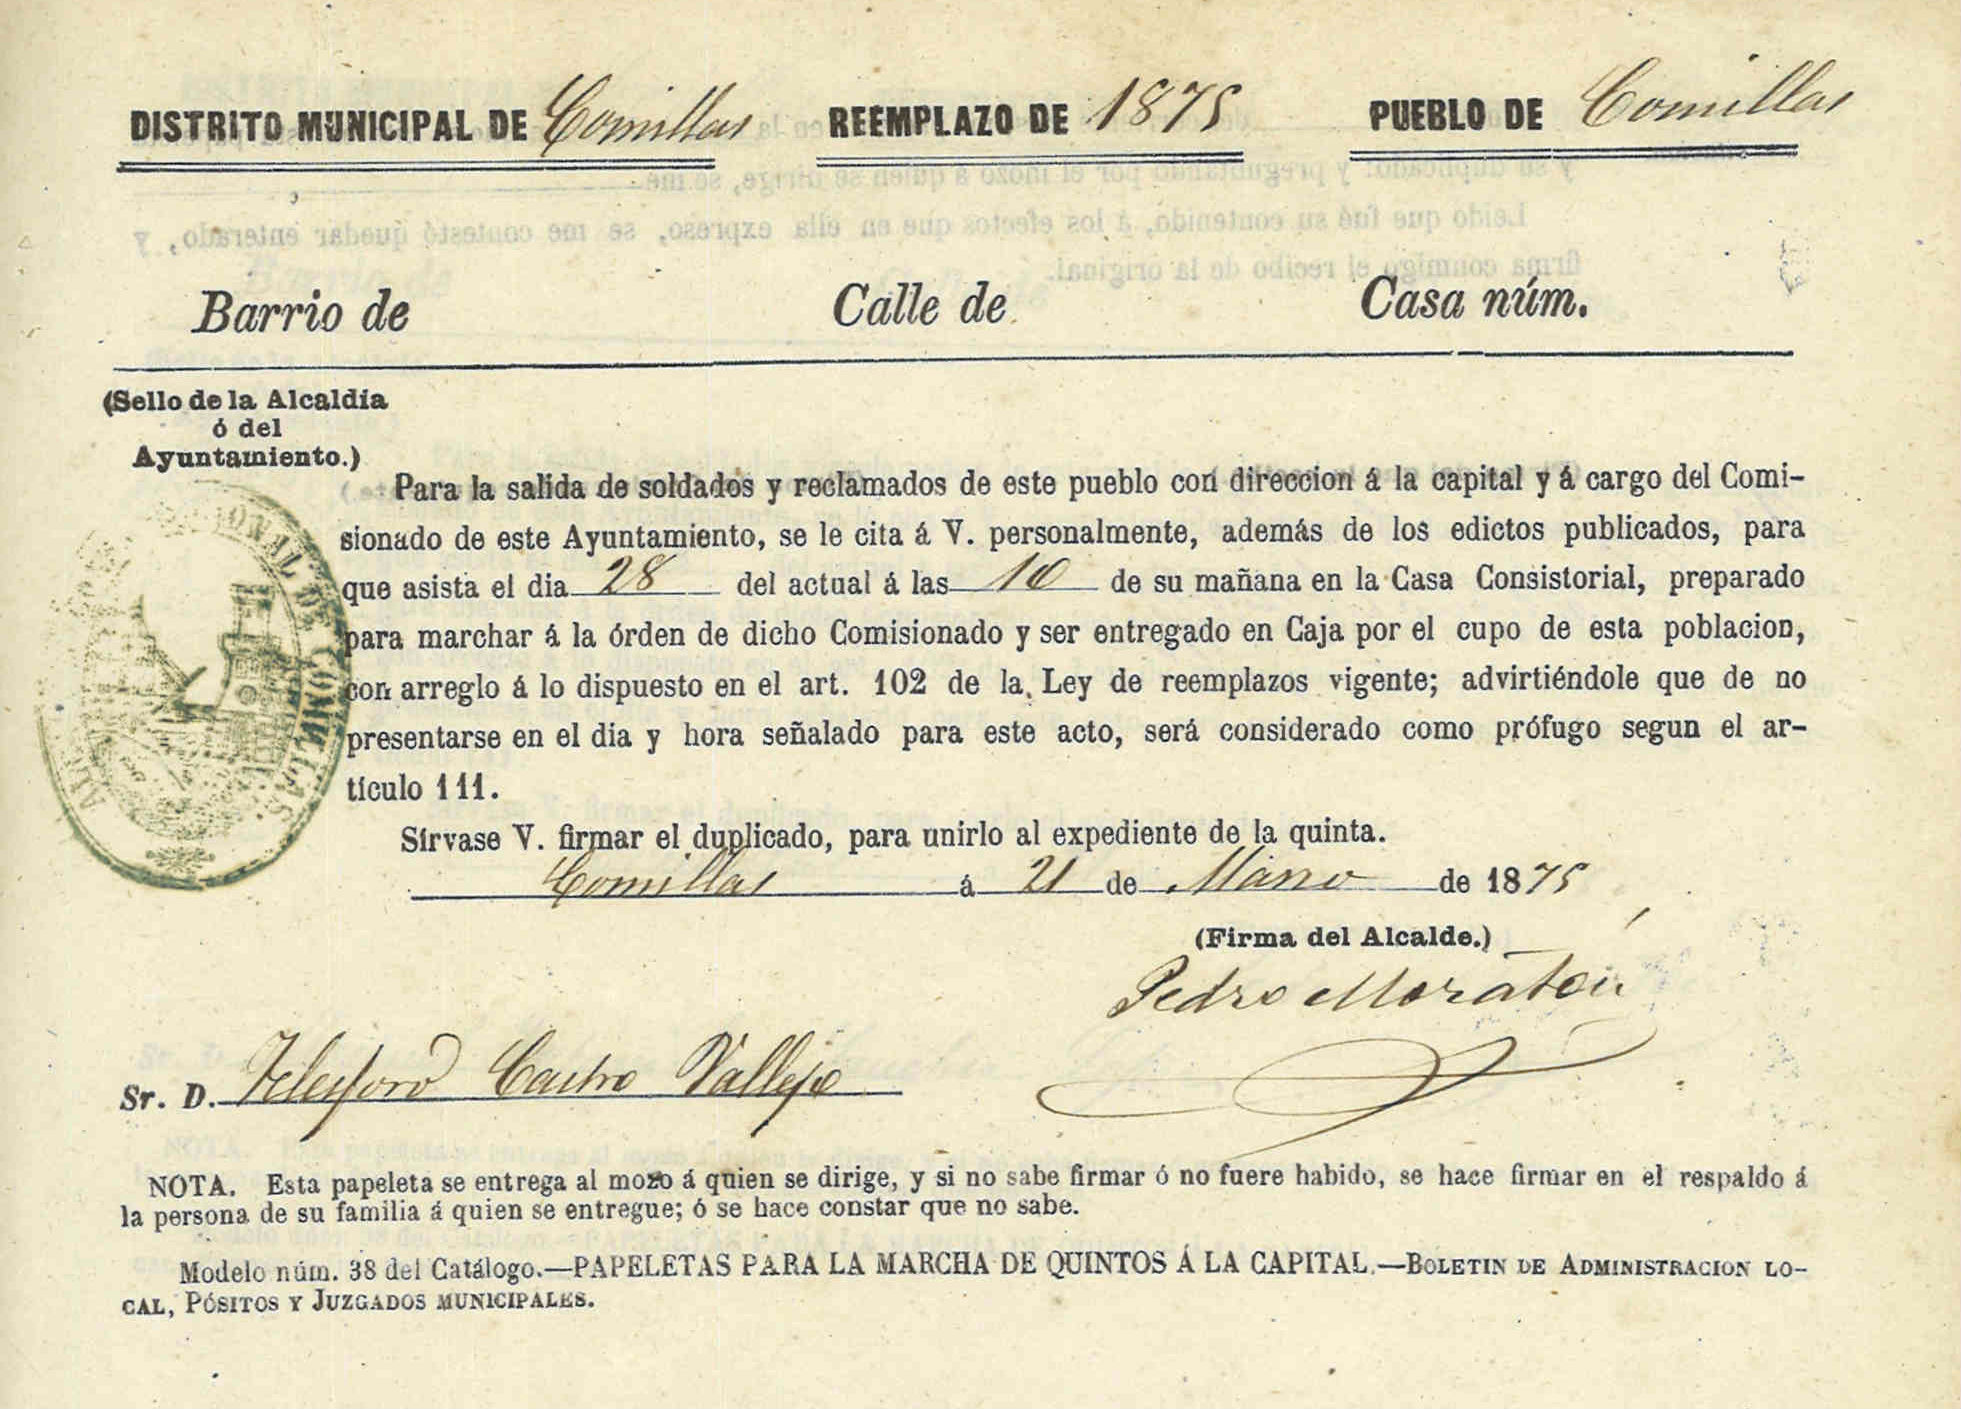 DISTRITO MUNICIPAL DE Comillas REEMPLAZO DE 1875 PUEBLO DE Comillas
Barrio de Calle de Casa núm.
(Sello de la Alcaldía
ó del
Ayuntamiento.)
Para la salida de soldados y reclamados de este pueblo con direccion á la capital y á cargo del Comi-
sionado de este Ayuntamiento, se le cita á V. personalmente, además de los edictos publicados, para
que asista el dia 28 del actual á las 10 de su mañana en la Casa Consistorial, preparado
para marchar á la órden de dicho Comisionado y ser entregado en Caja por el cupo de esta poblacion,
con arreglo á lo dispuesto en el art. 102 de la Ley de reemplazos vigente; advirtiéndole que de no
presentarse en el dia y hora señalado para este acto, será considerado como prófugo segun el ar-
tículo 111.
Sírvase V. firmar el duplicado, para unirlo al expediente de la quinta.
Comillas á 21 de Marzo de 1875
(Firma del Alcalde.)
Pedro Moratón
Sr. D. Telesforo Castro Vallejo
NOTA. Esta papeleta se entrega al mozo á quien se dirige, y si no sabe firmar ó no fuere habido, se hace firmar en el respaldo á
la persona de su familia á quien se entregue; ó se hace constar que no sabe.
Modelo núm. 38 del Catálogo.—PAPELETAS PARA LA MARCHA DE QUINTOS Á LA CAPITAL.—BOLETIN DE ADMINISTRACION LO-
CAL, PÓSITOS Y JUZGADOS MUNICIPALES.
DE COMILLAS